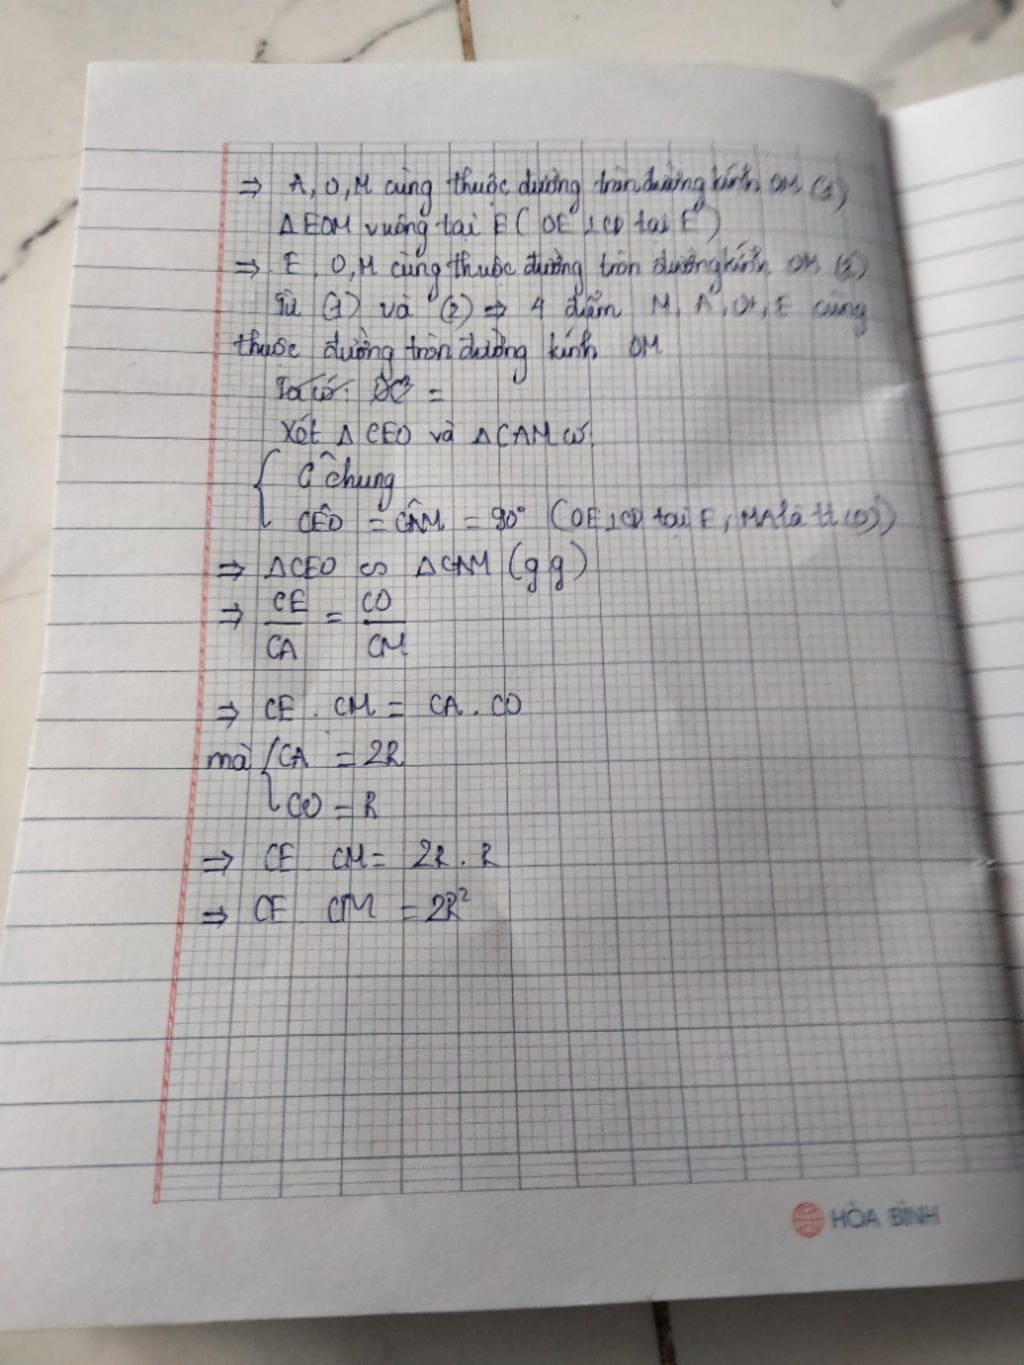 ⇒ A, O, M cùng thuộc đường tròn đường kính OM (1)
ΔEOM vuông tại E (OE ⊥ CD tại E)
⇒ E, O, M cùng thuộc đường tròn đường kính OM (2)
Từ (1) và (2) ⇒ 4 điểm M, A, O, E cùng
thuộc đường tròn đường kính OM
Ta có: =
Xét Δ CEO và Δ CAM có
Ĉ chung
CÊO = CÂM = 90° (OE ⊥ CD tại E, MA là tt (O))
⇒ ΔCEO ∽ ΔCAM (g g)
⇒ CE/CA = CO/CM
⇒ CE . CM = CA . CO
mà { CA = 2R
CO = R
⇒ CE CM = 2R . R
⇒ CE CM = 2R²
HÒA BÌNH